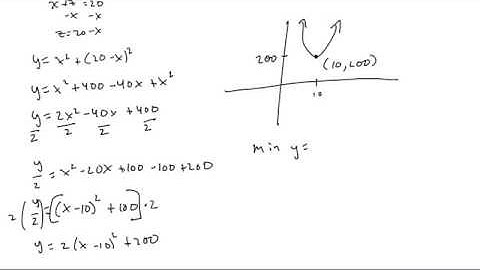 x+z=20
-x -x
z=20-x
y=x²+(20-x)²
y=x²+400-40x+x²
y=2x²-40x+400
2 2 2 2
y/2=x²-20x+100-100+200
2(y/2)=[(x-10)²+100]·2
y=2(x-10)²+200
200
(10,200)
10
min y=